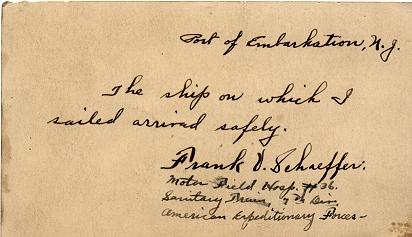 Port of Embarkation, N.J.
The ship on which I
sailed arrived safely.
Frank D. Schaeffer.
Motor Field Hosp. #36.
Sanitary Train, 7th Div.
American Expeditionary Forces-